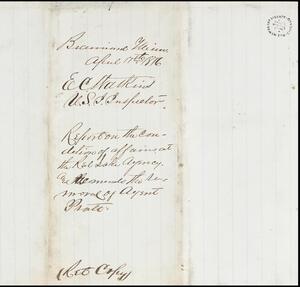 Brainerd Minn.
April 17th 1876
E C Watkins
U.S.I. Inspector.
Report on the con-
dition of affairs at
the Red Lake Agency.
Recommends the re-
moval of Agent
Pratt.
(Ret Copy)